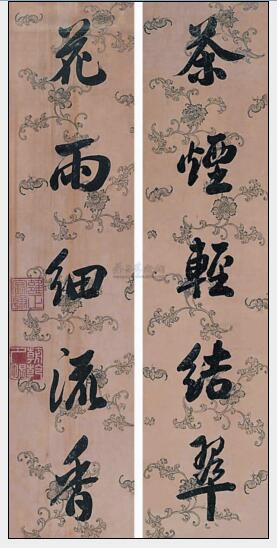 茶煙輕結翠
花雨細流香